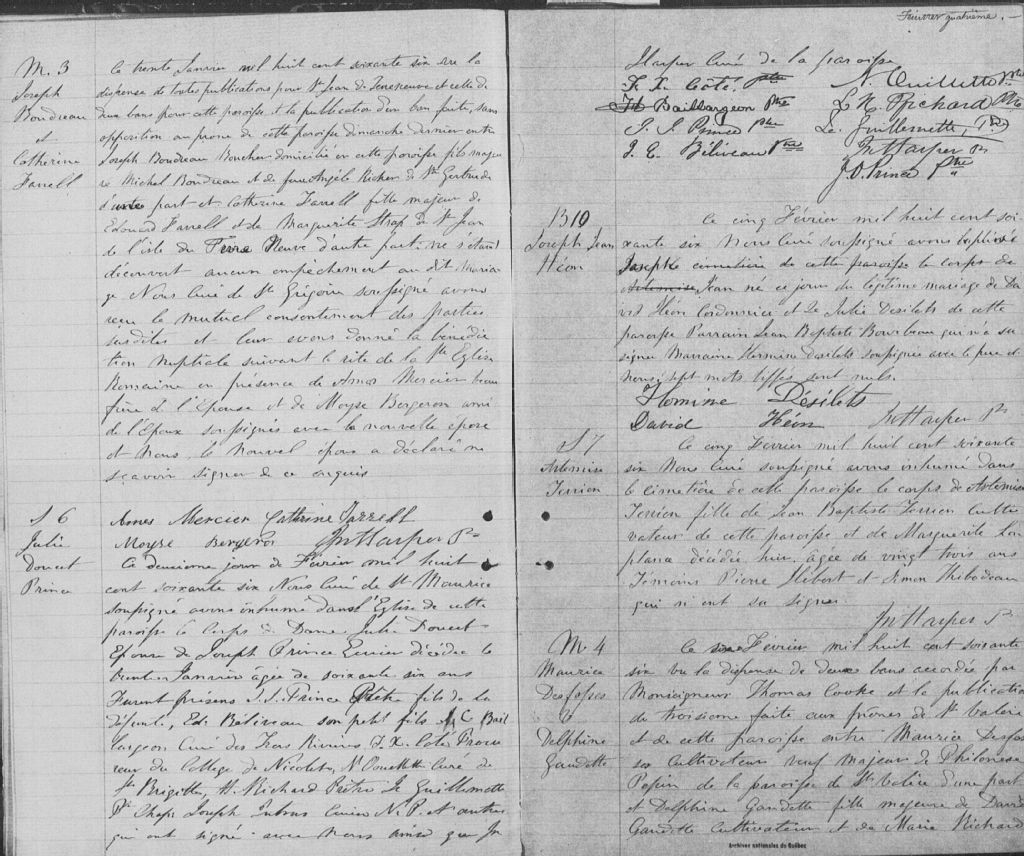 M. 3
Joseph
Boudreau
et
Catherine
Farrell
Ce trente Janvier mil huit cent soixante six vu la
dispense de toutes publications pour St Jean de Terreneuve et celle de
deux bans pour cette paroisse et la publication d'un ban faite, sans
opposition au prone de cette paroisse dimanche dernier entre
Joseph Boudreau Boucher domicilié en cette paroisse fils majeur
de Michel Boudreau et de feue Angèle Richer de Ste Gertrude
d'une part et Catherine Farrell fille majeure de
Edouard Farrell et de Marguerite Strap de St Jean
de l'isle de Terre Neuve d'autre part; ne s'étant
découvert aucun empêchement au dit maria
ge Nous Curé de St Grégoire soussigné avons
reçu le mutuel consentement des parties
susdites et leur avons donné la bénédic
tion nuptiale suivant le rite de la Ste Eglise
Romaine en présence de Amos Mercier beau
frère de l'Epouse et de Moyse Bergeron ami
de l'Epoux soussignés avec la nouvelle épouse
et nous le nouvel époux a déclaré ne
sçavoir signer de ce enquis
Amos Mercier Catherine Farrell
Moyse Bergeron Jn Harper Ptre
S 6
Julie
Doucet
Prince
Ce deuxième jour de Février mil huit
cent soixante six Nous Curé de St Maurice
soussigné avons inhumé dans l'Eglise de cette
paroisse le corps de Dame Julie Doucet
Epouse de Joseph Prince Ecuier décédée le
trente Janvier agée de soixante six ans
Furent présens J. I. Prince Prêtre fils de la
défunte, Ed. Béliveau son petit fils, C. Bail
largeon Curé des Trois Rivières, F. X. Coté Procu
reur du Collège de Nicolet, N. Ouellette Curé de
Ste Brigitte, H. Richard Prêtre Ls Guillemette
Pr Chap. Joseph Ecuier N. P. et autres
qui ont signé avec nous ainsi que Jn
Février quatrième.
Harper Curé de la paroisse
F. X. Coté Ptre N. Ouellette Ptre
Baillargeon Ptre L. H. Richard Ptre
J. I. Prince Ptre Ls Guillemette, Ptre
J. E. Béliveau Ptre Jn Harper Ptre
J. O. Prince Ptre
B 10
Joseph Jean
Héon
Ce cinq Février mil huit cent soi
xante six Nous Curé soussigné avons baptisé
Joseph cimetière de cette paroisse le corps de
Artemise Jean né ce jour du légitime mariage de Da
vid Héon Cordonnier et de Julie Desilets de cette
paroisse Parrain Jean Baptiste Bourbeau qui n'a su
signer Marraine Hermine Desilets soussignée avec le père et
nous; sept mots biffés sont nuls.
Hermine Désilets
David Héon Jn Harper Ptre
S 7
Artémise
Terrien
Ce cinq Février mil huit cent soixante
six Nous Curé soussigné avons inhumé dans
le cimetière de cette paroisse le corps de Artémise
Terrien fille de Jean Baptiste Terrien culti
vateur de cette paroisse et de Marguerite
décédée hier agée de vingt trois ans
Témoins Pierre Hébert et Simon Thibodeau
qui n'ont su signer
Jn Harper P
M. 4
Maurice
Desfossés
&
Delphine
Gaudette
Ce six Février mil huit cent soixante
six vu la dispense de deux bans accordée par
Monseigneur Thomas Cooke et la publication
du troisieme faite aux prônes de St Valère
et de cette paroisse entre Maurice Desfos
sés cultivateur veuf majeur de Philonèse
Pepin de la paroisse de St Valère d'une part
et Delphine Gaudette fille majeure de David
Gaudette cultivateur et de Marie Richard
Archives nationales du Québec